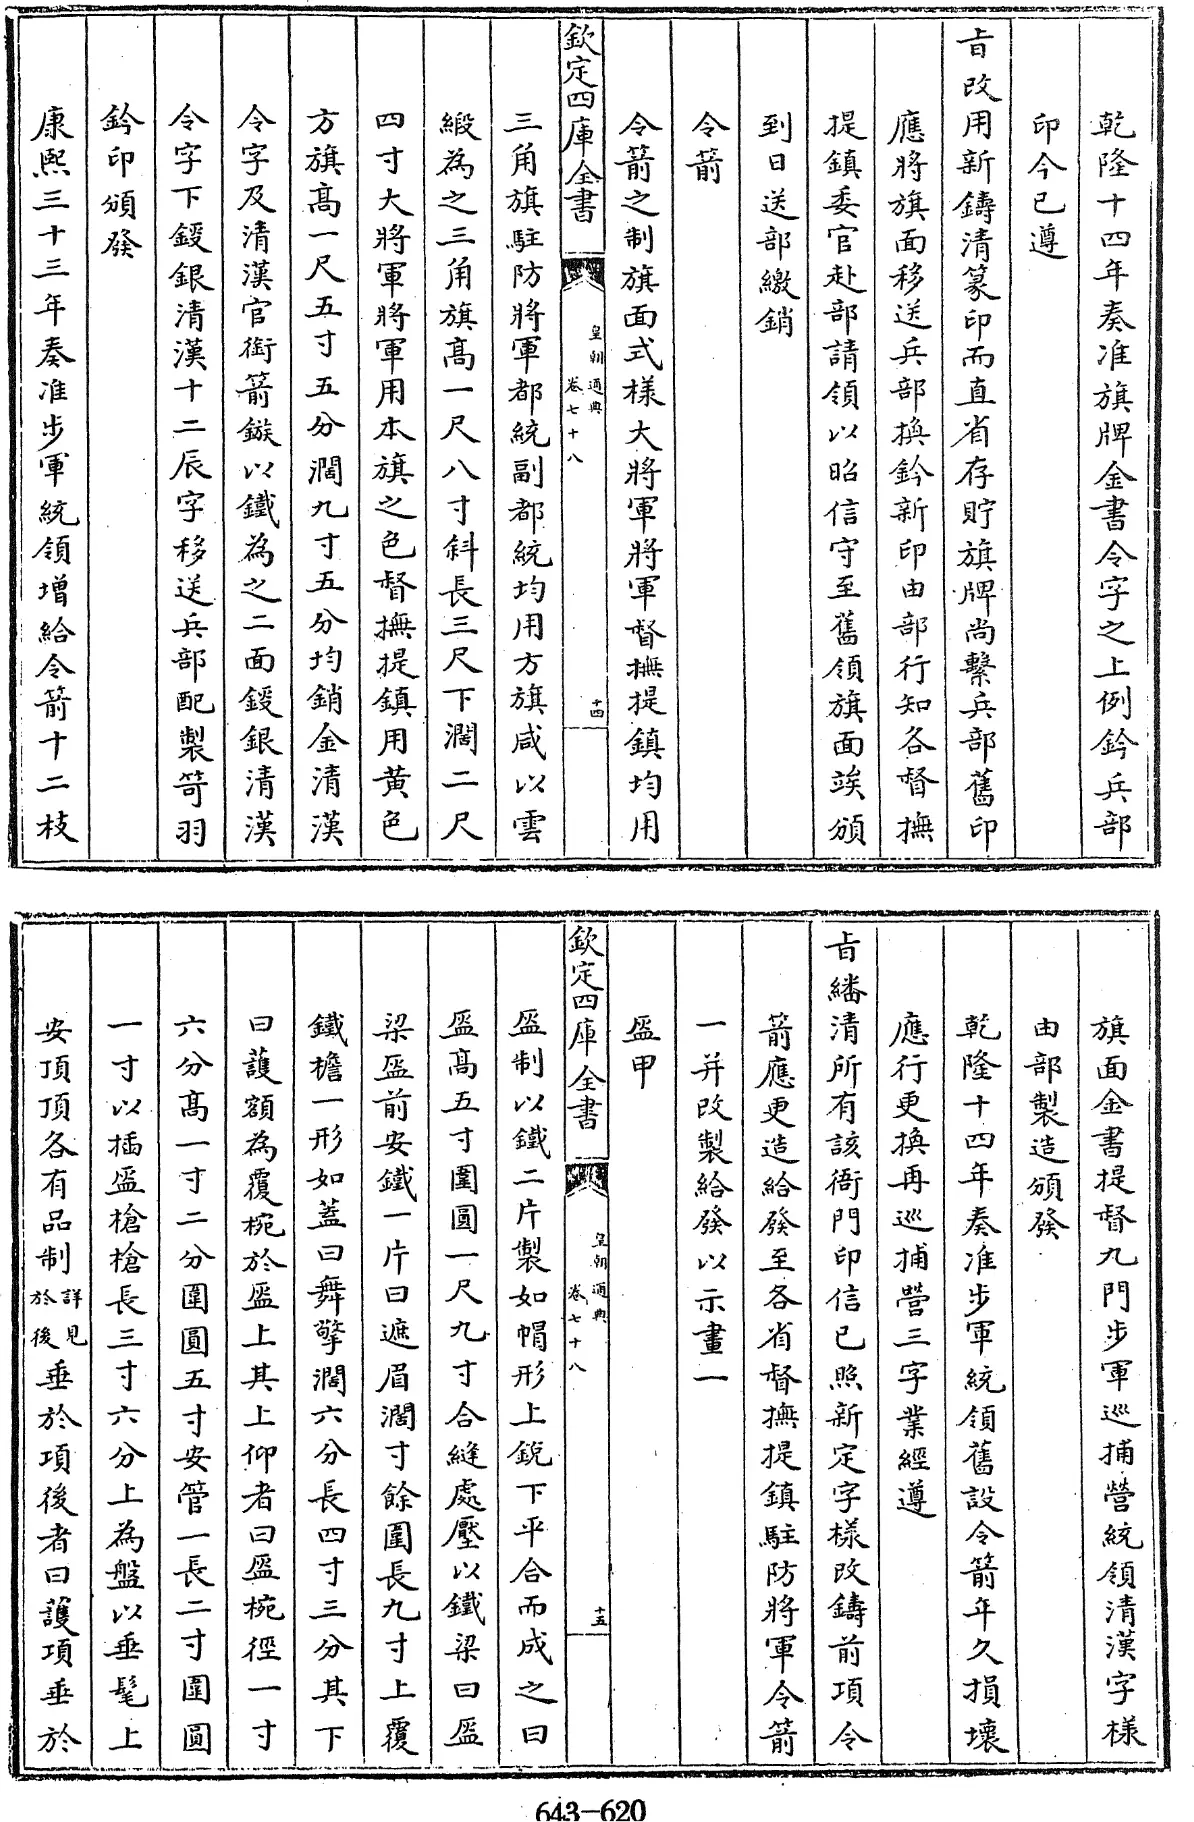 乾隆十四年奏准旗牌金書令字之上例鈐兵部
印今已遵
旨改用新鑄清篆印而直省存貯旗牌尚繫兵部舊印
應將旗面移送兵部換鈐新印由部行知各督撫
提鎮委官赴部請領以昭信守至舊領旗面竢頒
到日送部繳銷
令箭
令箭之制旗面式樣大將軍將軍督撫提鎮均用
欽定四庫全書
皇朝通典
卷七十八
十四
三角旗駐防將軍都統副都統均用方旗咸以雲
緞為之三角旗高一尺八寸斜長三尺下濶二尺
四寸大將軍將軍用本旗之色督撫提鎮用黃色
方旗高一尺五寸五分濶九寸五分均銷金清漢
令字及清漢官銜箭鏃以鐵為之二面鋄銀清漢
令字下鋄銀清漢十二辰字移送兵部配製笴羽
鈐印頒發
康熙三十三年奏准步軍統領增給令箭十二枝
旗面金書提督九門步軍巡捕營統領清漢字樣
由部製造頒發
乾隆十四年奏准步軍統領舊設令箭年久損壞
應行更換再巡捕營三字業經遵
旨繙清所有該衙門印信已照新定字樣改鑄前項令
箭應更造給發至各省督撫提鎮駐防將軍令箭
一并改製給發以示畫一
盔甲
欽定四庫全書
皇朝通典
卷七十八
十五
盔制以鐵二片製如帽形上銳下平合而成之曰
盔高五寸圍圓一尺九寸合縫處壓以鐵梁曰盔
梁盔前安鐵一片曰遮眉濶寸餘圍長九寸上覆
鐵檐一形如蓋曰舞擎濶六分長四寸三分其下
曰護額為覆椀於盔上其上仰者曰盔椀徑一寸
六分高一寸二分圍圓五寸安管一長二寸圍圓
一寸以插盔槍槍長三寸六分上為盤以垂髦上
安頂頂各有品制詳見於後垂於項後者曰護項垂於
643-620